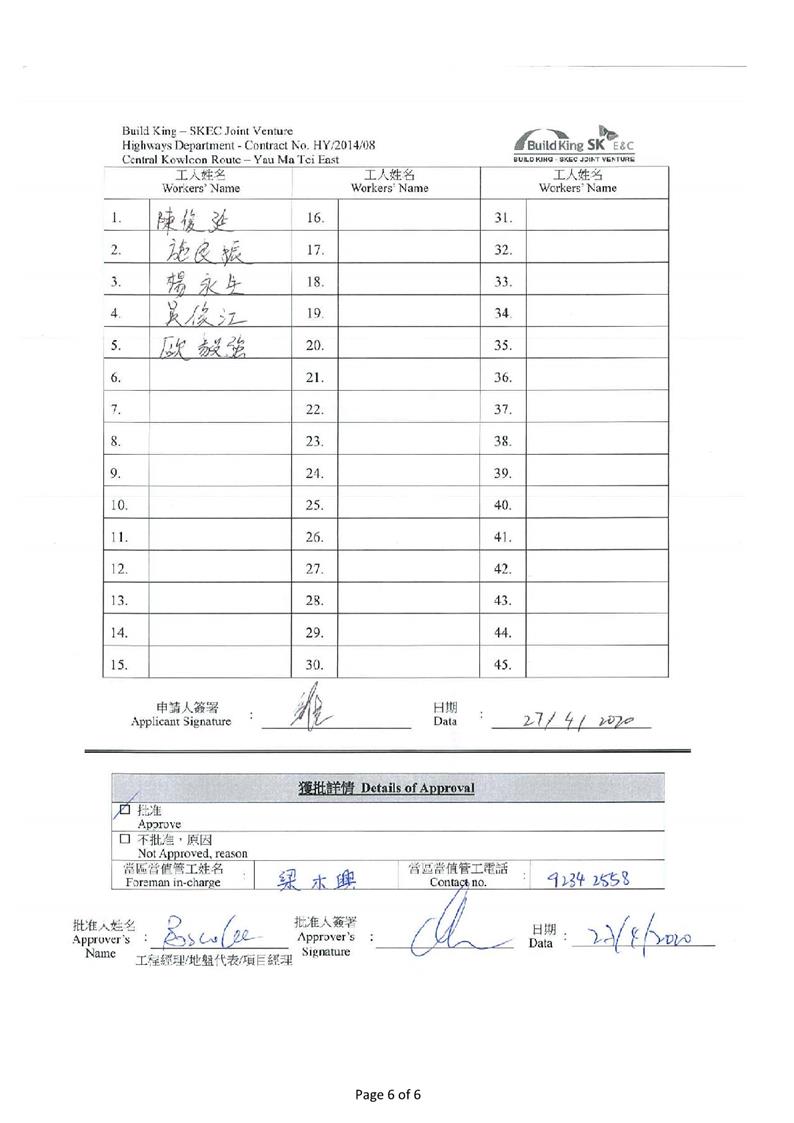 Build King – SKEC Joint Venture
Highways Department - Contract No. HY/2014/08
Central Kowloon Route – Yau Ma Tei East
Build King SK E&C
BUILD KING - SKEC JOINT VENTURE
工人姓名 工人姓名 工人姓名
Workers' Name Workers' Name Workers' Name
1. 陳俊延 16. 31.
2. 施民振 17. 32.
3. 楊永生 18. 33.
4. 吳俊江 19. 34.
5. 歐毅強 20. 35.
6. 21. 36.
7. 22. 37.
8. 23. 38.
9. 24. 39.
10. 25. 40.
11. 26. 41.
12. 27. 42.
13. 28. 43.
14. 29. 44.
15. 30. 45.
申請人簽署 : 日期 : 27/4/2020
Applicant Signature Data
獲批詳情 Details of Approval
批准
Approve
不批准，原因
Not Approved, reason
當區當值管工姓名 : 梁木興 當區當值管工電話 : 9234 2558
Foreman in-charge Contact no.
批准人姓名 批准人簽署 日期
Approver's : Bosco Lee Approver's : Data : 27/4/2020
Name Signature
工程經理/地盤代表/項目經理
Page 6 of 6